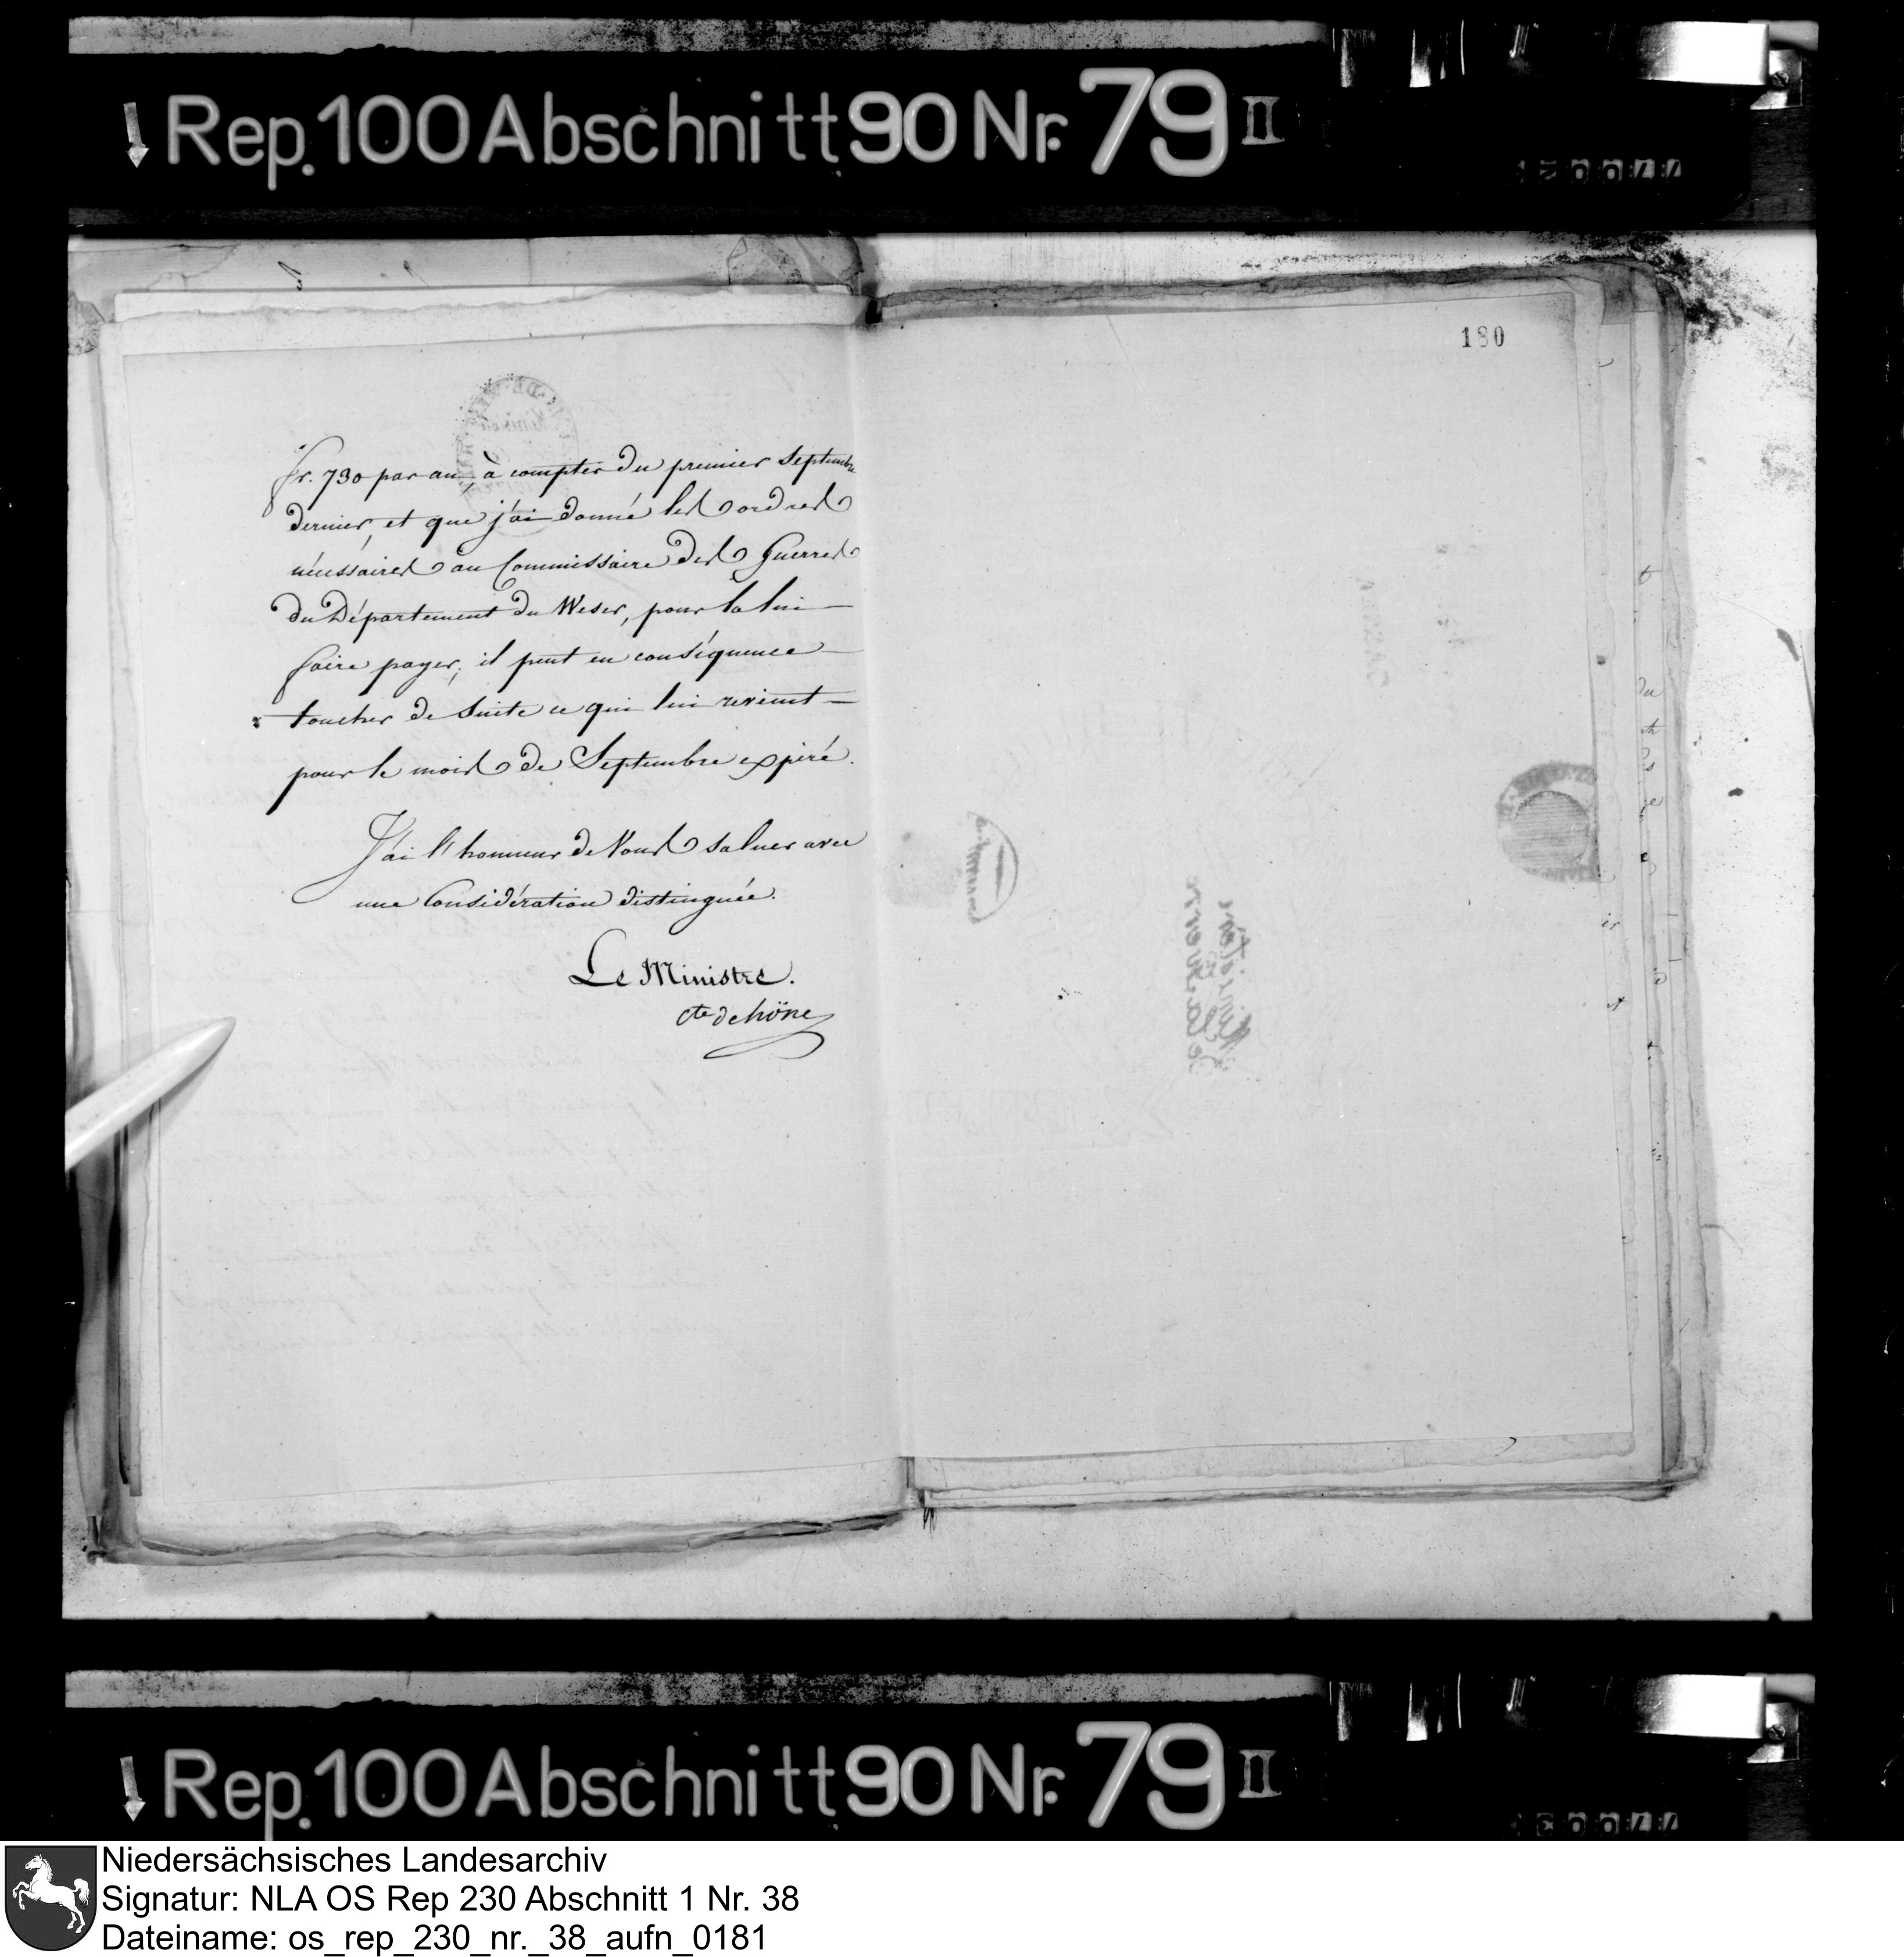 Rep. 100 Abschnitt 90 Nr. 79 II
180
fr. 730 par an, à compter du premier Septembre
dernier, et que j'ai donné les ordres
nécéssaires au Commissaire des Guerres
du Département du Weser, pour la lui
faire payer; il peut en conséquence
toucher de suite ce qui lui revient
pour le mois de Septembre expiré.
J'ai l'honneur de Vous saluer avec
une Considération distinguée.
Le Ministre.
cte de höne
Rep. 100 Abschnitt 90 Nr. 79 II
Niedersächsisches Landesarchiv
Signatur: NLA OS Rep 230 Abschnitt 1 Nr. 38
Dateiname: os_rep_230_nr._38_aufn_0181